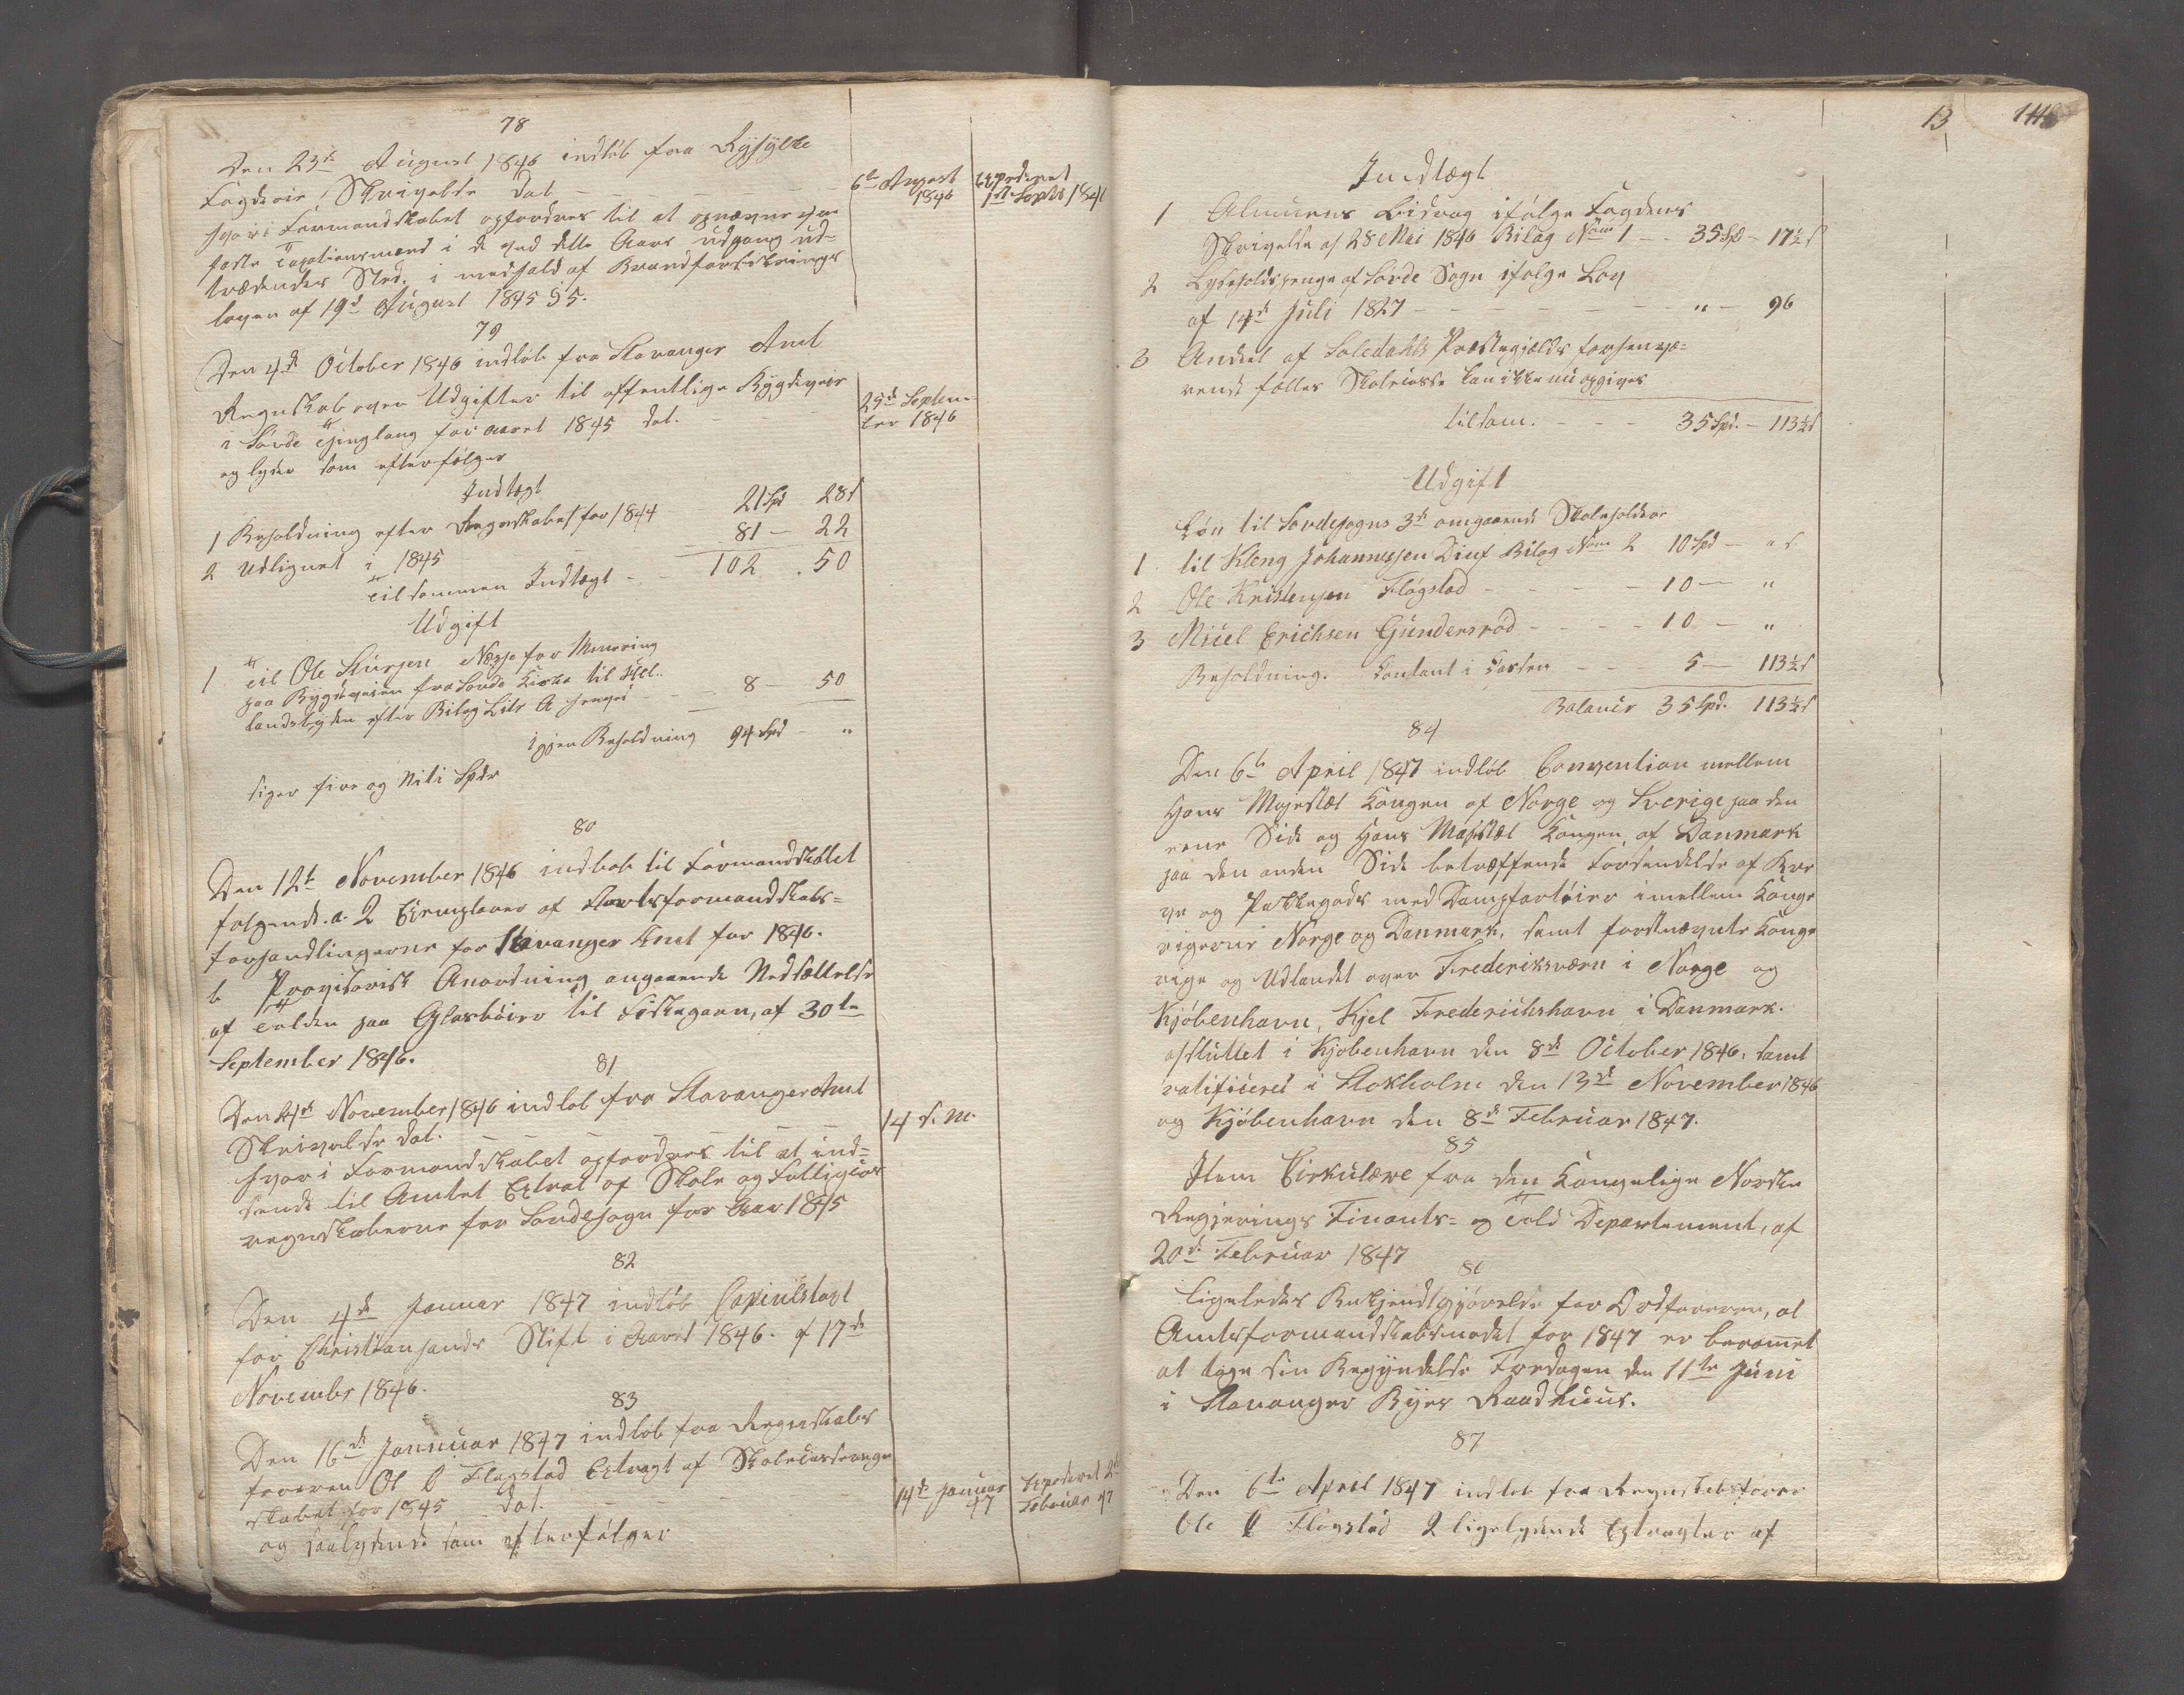 78
Den 23de August 1846 indløb fra Ryfylke
Fogderie Skrivelse dat
hvori Formandskabet opfordres til at opnævne
faste Taxationsmænd i de ved dette Aars Udgang ud=
trædendes Sted, i medhold af Brandforsikrings
loven af 19de August 1845 § 5.
6te August
1846
Expederet
1ste Septb 1846
79
Den 4de October 1846 indløb fra Stavanger Amt
Regnskab over Udgifter til offentlige Bygdeveie
i Søvde Thinglaug for Aaret 1845 dat.
og lyder som efterfølger
29de Septem-
ber 1846
Indtægt
1 Beholdning efter Regnskabet for 1844 21 Spd 28 s
2 Udlignet i 1845 81 — 22
Tilsammen Indtægt 102 . 50
Udgift
1 Til Ole Næsse for
paa Bygdeveien fra Søvde Kirke til Hel..
landsbygden efter Bilag Litr A 8 — 50
Igjen Beholdning 94 Spd — "
siger fire og Niti Spdr
80
Den 12te November 1846 indløb til Formandskabet
følgende. a. 2 Exemplarer af Amtsformandskabs=
forhandlingerne for Stavanger Amt for 1846.
b Provisorisk Anordning angaaende Nedsættelse
af Tolden paa Glasbøier til Fiskegarn, af 30te
September 1846.
81
Den 21de November 1846 indløb fra Stavanger Amt
Skrivelse dat.
hvori Formandskabet opfordres til at ind=
sende til Amtet Extract af Skole og Fattigcas
regnskaberne for Søvdesogn for Aar 1845
14 d. M.
82
Den 4de Januar 1847 indløb Capiteltaxt
for Christiansands Stift i Aaret 1846. af 17de
Novembr 1846.
83
Den 16de Januar 1847 indløb fra Regnskabs
føreren Ol Fløgstad Extract af Skolecasseregn
skabet for 1845 dat.
og saalydende som efterfølger
14de Januar
47
Expederet 2de
Februar 47
13
Indtægt
1 Almuens Bidrag ifølge Fogdens
Skrivelse af 28 Mai 1846 Bilag Nom 1 — 35 Spd — 17½ s
2 af Søvde Sogn ifølge Lov
af 14de Juli 1827 " — 96
3 Andeel af Suledahls Præstegjælds forhenvæ=
rende fælles Skolecasse kan ikke nu opgives
tilsam. 35 Spd. — 113½ s
Udgift
Løn til Søvdesogns 3de omgaaende Skoleholdere
1 til Kleng Johannessen Bilag Nom 2 10 Spd — " s.
2 Ole Kristensen Fløgstad 10 — "
3 Micel Erichsen Gundersrød 10 — "
Beholdning. Contant i Cassen 5 — 113½ s
Balance 35 Spd. 113½ s
84
Den 6te April 1847 indløb Convention mellem
Hans Majestæt Kongen af Norge og Sverige paa den
eene Side og Hans Majestæt Kongen af Danmark
paa den anden Side betræffende Forsendelse af Bre
ve og Pakkegods med Dampfartøier imellem Konge
rigerne Norge og Danmark, samt førstnævnte Konge
rige og Udlandet over Frederiksværn i Norge og
Kjøbenhavn, Kjel Frederichshavn i Danmark.
afsluttet i Kjøbenhavn den 8de October 1846. samt
ratificeret i Stokholm den 13de November 1846
og Kjøbenhavn den 8de Februar 1847.
85
Item Cirkulære fra den Kongelige Norske
Regjerings Finants= og Told Departement, af
20de Februar 1847
86
Ligeledes Bekjendtgjørelse for Ordføreren, at
Amtsformandskabsmødet for 1847 er berammet
at tage sin Begyndelse Fredagen den 11te Juni
i Stavanger Byes Raadhuus.
87
Den 6te April 1847 indløb fra Regnskabsfører
Ole Fløgstad 2 ligelydende Extracter af